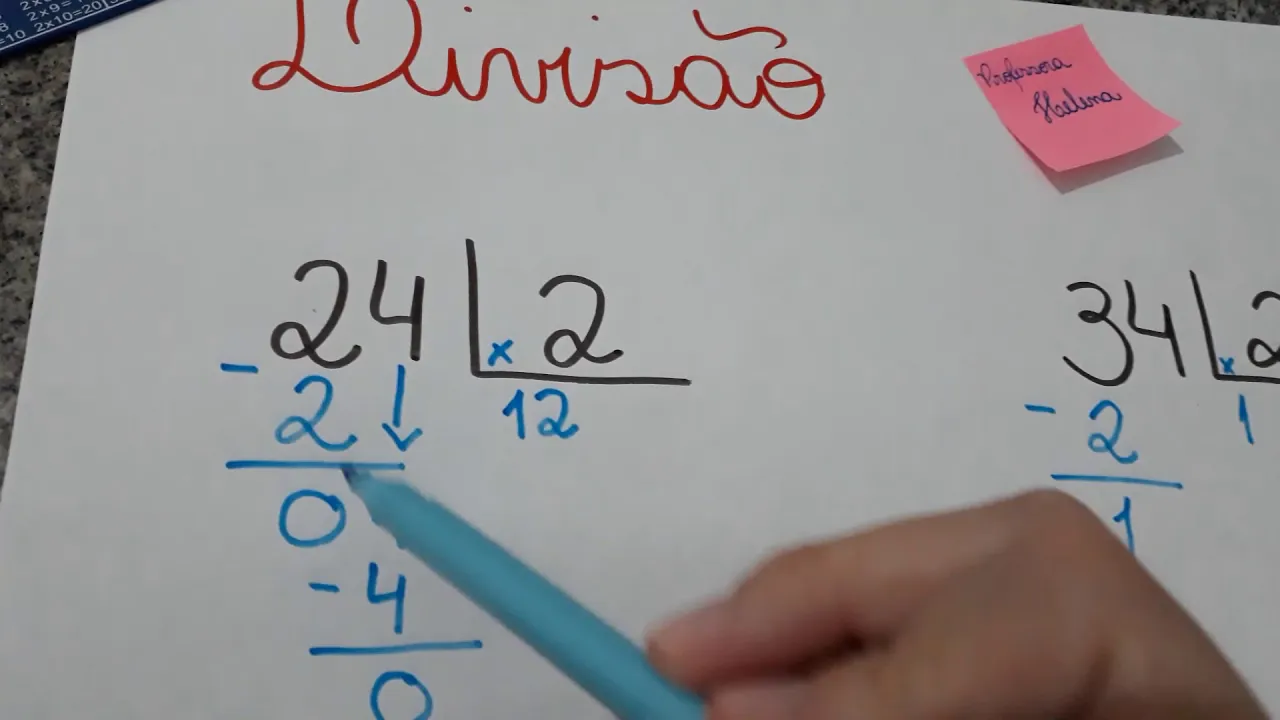 2x9=1
=10 2x10=20
Divisão
Professora
Helena
24 2
- 2 x 12
0
- 4
0
34 2
- 2 x 1
1